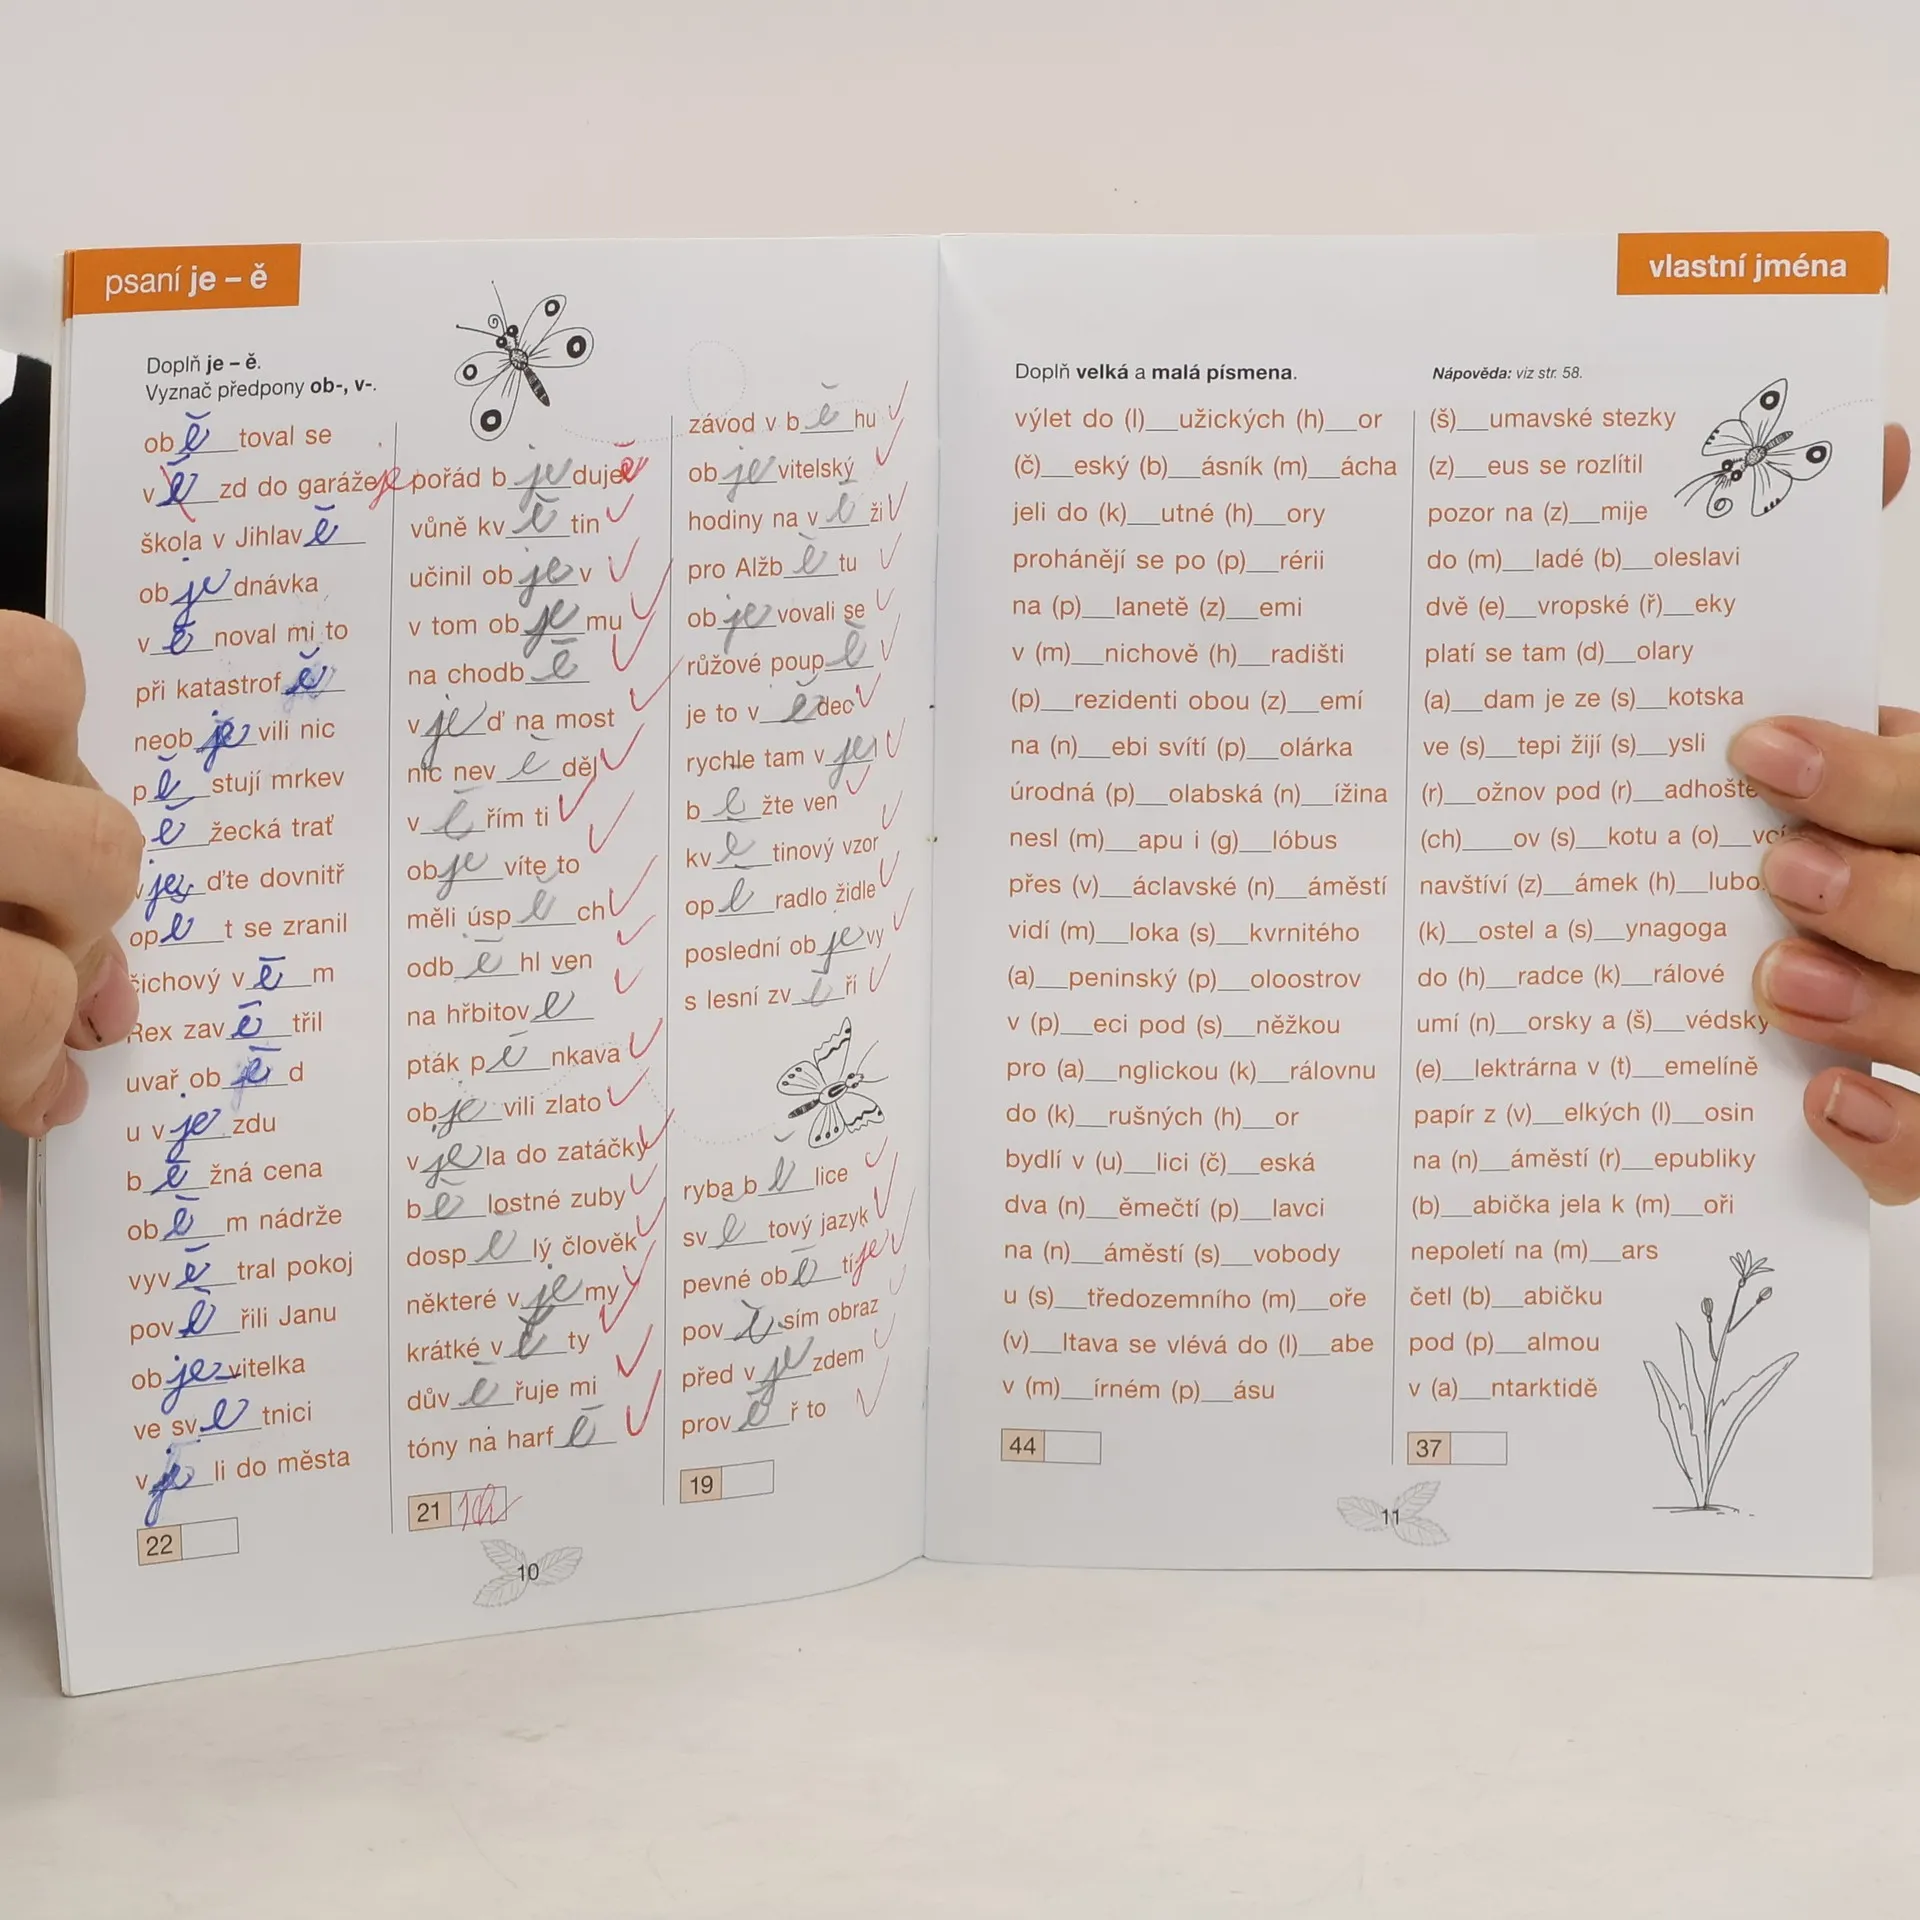 psaní je – ě
Doplň je – ě.
Vyznač předpony ob-, v-.
ob ě toval se
v ě zd do garáže je
škola v Jihlav ě
ob je dnávka
v ě noval mi to
při katastrof ě
neob je vili nic
p ě stují mrkev
ě žecká trať
v je ďte dovnitř
op ě t se zranil
čichový v ě m
Rex zav ě třil
uvař ob ě d
u v je zdu
b ě žná cena
ob ě m nádrže
vyv ě tral pokoj
pov ě řili Janu
ob je vitelka
ve sv ě tnici
v je li do města
22
pořád b je duje ě
vůně kv ě tin
učinil ob je v
v tom ob je mu
na chodb ě
v je ď na most
nic nev ě děl
v ě řím ti
ob je víte to
měli úsp ě ch
odb ě hl ven
na hřbitov ě
pták p ě nkava
ob je vili zlato
v je la do zatáčky
b ě lostné zuby
dosp ě lý člověk
některé v je my
krátké v ě ty
dův ě řuje mi
tóny na harf ě
21
závod v b ě hu
ob je vitelský
hodiny na v ě ži
pro Alžb ě tu
ob je vovali se
růžové poup ě
je to v ě dec
rychle tam v je l
b ě žte ven
kv ě tinový vzor
op ě radlo židle
poslední ob je vy
s lesní zv ě ří
ryba b ě lice
sv ě tový jazyk
pevné ob ě tí je
pov ě sím obraz
před v je zdem
prov ě ř to
19
10
vlastní jména
Doplň velká a malá písmena.
Nápověda: viz str. 58.
výlet do (l)__užických (h)__or
(č)__eský (b)__ásník (m)__ácha
jeli do (k)__utné (h)__ory
prohánějí se po (p)__rérii
na (p)__lanetě (z)__emi
v (m)__nichově (h)__radišti
(p)__rezidenti obou (z)__emí
na (n)__ebi svítí (p)__olárka
úrodná (p)__olabská (n)__ížina
nesl (m)__apu i (g)__lóbus
přes (v)__áclavské (n)__áměstí
vidí (m)__loka (s)__kvrnitého
(a)__peninský (p)__oloostrov
v (p)__eci pod (s)__něžkou
pro (a)__nglickou (k)__rálovnu
do (k)__rušných (h)__or
bydlí v (u)__lici (č)__eská
dva (n)__ěmečtí (p)__lavci
na (n)__áměstí (s)__vobody
u (s)__tředozemního (m)__oře
(v)__ltava se vlévá do (l)__abe
v (m)__írném (p)__ásu
44
(š)__umavské stezky
(z)__eus se rozlítil
pozor na (z)__mije
do (m)__ladé (b)__oleslavi
dvě (e)__vropské (ř)__eky
platí se tam (d)__olary
(a)__dam je ze (s)__kotska
ve (s)__tepi žijí (s)__ysli
(r)__ožnov pod (r)__adhoště
(ch)___ov (s)__kotu a (o)__vcí
navštíví (z)__ámek (h)__lubo
(k)__ostel a (s)__ynagoga
do (h)__radce (k)__rálové
umí (n)__orsky a (š)__védsky
(e)__lektrárna v (t)__emelíně
papír z (v)__elkých (l)__osin
na (n)__áměstí (r)__epubliky
(b)__abička jela k (m)__oři
nepoletí na (m)__ars
četl (b)__abičku
pod (p)__almou
v (a)__ntarktidě
37
11